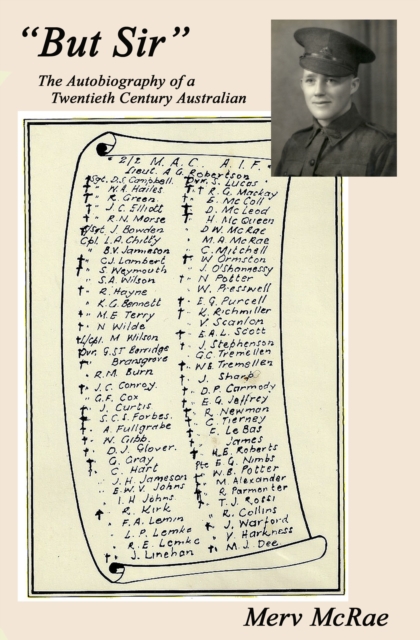 "But Sir"
The Autobiography of a
Twentieth Century Australian
2/2 M.A.C. A.I.F.
Lieut. A G Robertson
Sgt. D.S Campbell.
" W.A. Hailes
" R. Green
" J. C. Elliott
" R.N. Morse
L/Sgt J. Bowden
Cpl. L.A. Chitty
" B.V. Jamieson
" C.J. Lambert
" S. Weymouth
" S.A. Wilson
" R. Hayne
" K.G. Bennett
" M.E Terry
" N Wilde
L/Cpl. M Wilson
Dvr. G.ST Berridge
Bransgrove
" R.M. Burn
" J.C. Conroy.
" G.F. Cox
" J. Curtis
" S.C.S. Forbes.
" A. Fullgrabe
" W. Gibb.
" D.J. Glover.
G. Gray
" C. Hart
" J.H. Jameson
" E.W.V. Johns
" I.H Johns
" R. Kirk
" F.A. Lemin
" L.P. Lemke
" R.E. Lemke
" J. Linehan
Dvr. S. Lucas
" R.G. Mackay
" E. McColl
" D. McLeod
" H. McQueen
" D.W. McRae
" M.A. McRae
" C. Mitchell
" W Ormston
" J. O'Shannessy
" N Potter
" W. Presswell
" E.G. Purcell
" K. Richmiller
" V. Scanlon
" E.A.L. Scott
" J. Stephenson
" G.C Tremellen
" W.E. Tremellen
" J. Sharp
" D.P. Carmody
" E.G. Jeffrey
" R. Newman
" C. Tierney
" E. Le Bas
" James
" H.E. Roberts
Pte E G. Nimbs
" W.B. Potter
" M. Alexander
" R. Parmenter
" T. J Rossi
" R. Collins
" J. Warford
" V. Harkness
" M.J. Dee
Merv McRae